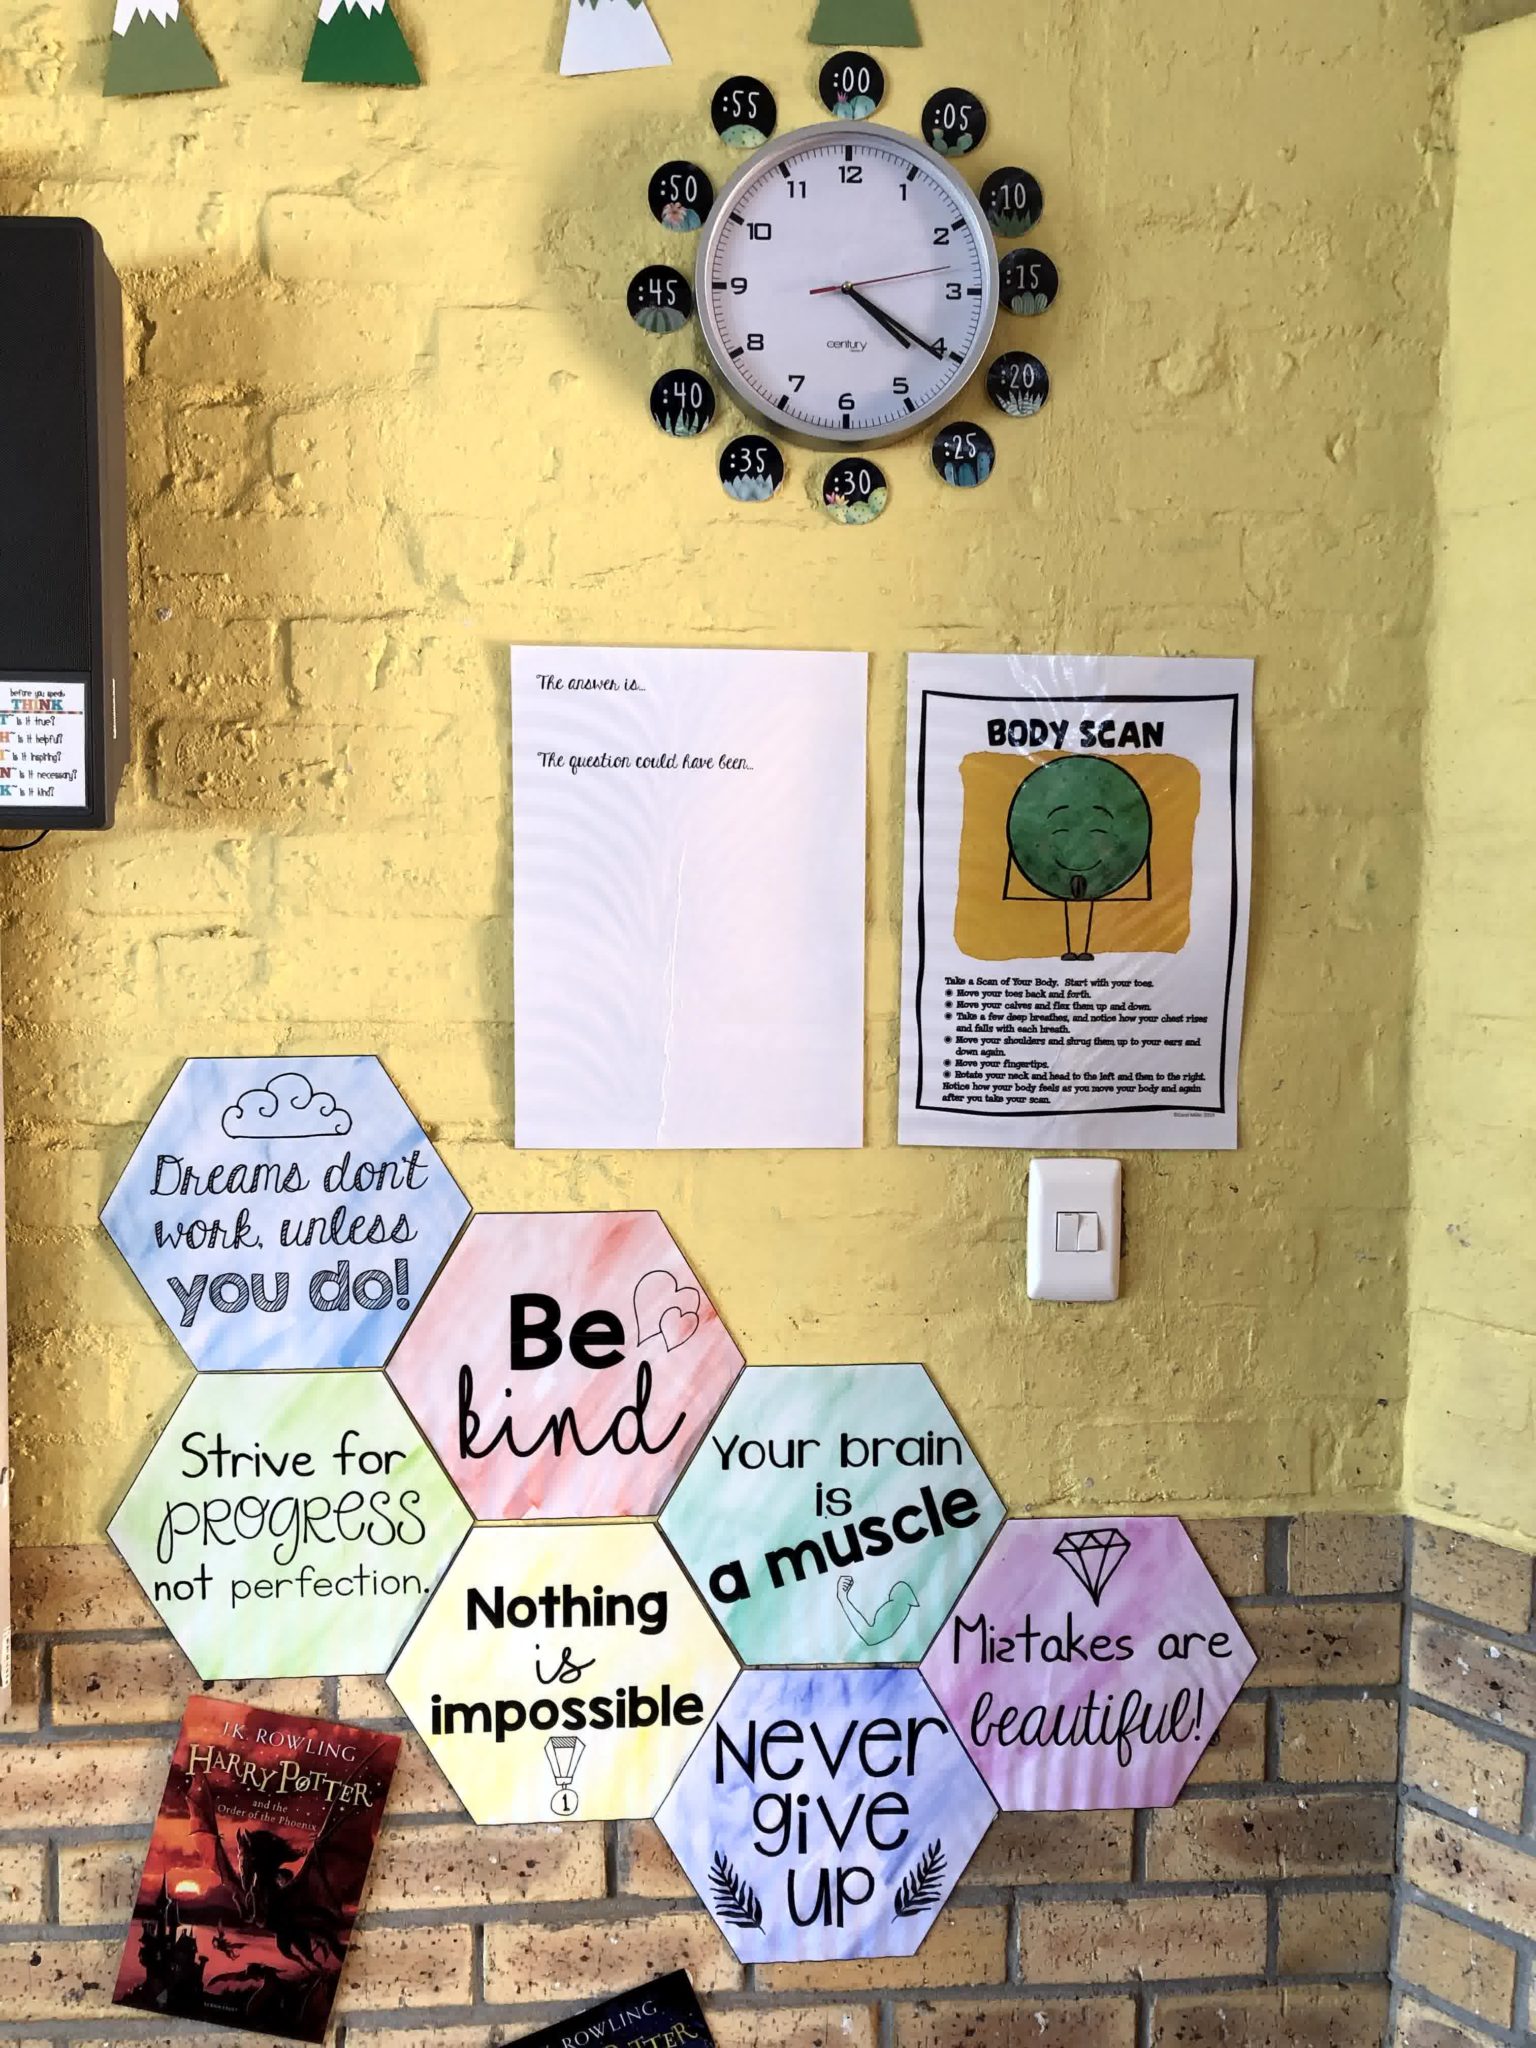 :00
:05
:10
:15
:20
:25
:30
:35
:40
:45
:50
:55
12
1
2
3
4
5
6
7
8
9
10
11
century
before you speak
THINK
T~ is it true?
H~ is it helpful?
I~ is it inspiring?
N~ is it necessary?
K~ is it kind?
The answer is...
The question could have been...
BODY SCAN
Take a Scan of Your Body. Start with your toes.
Move your toes back and forth.
Move your calves and flex them up and down.
Take a few deep breathes, and notice how your chest rises
and falls with each breath.
Move your shoulders and shrug them up to your ears and
down again.
Move your fingertips.
Rotate your neck and head to the left and then to the right.
Notice how your body feels as you move your body and again
after you take your scan.
Dreams don't
work, unless
you do!
Be
kind
Strive for
PROGRESS
not perfection.
Your brain
is
a muscle
Nothing
is
impossible
1
Mistakes are
beautiful!
Never
give
up
J.K. ROWLING
HARRY POTTER
and the
Order of the Phoenix
BLOOMSBURY
ROWLING
TTER